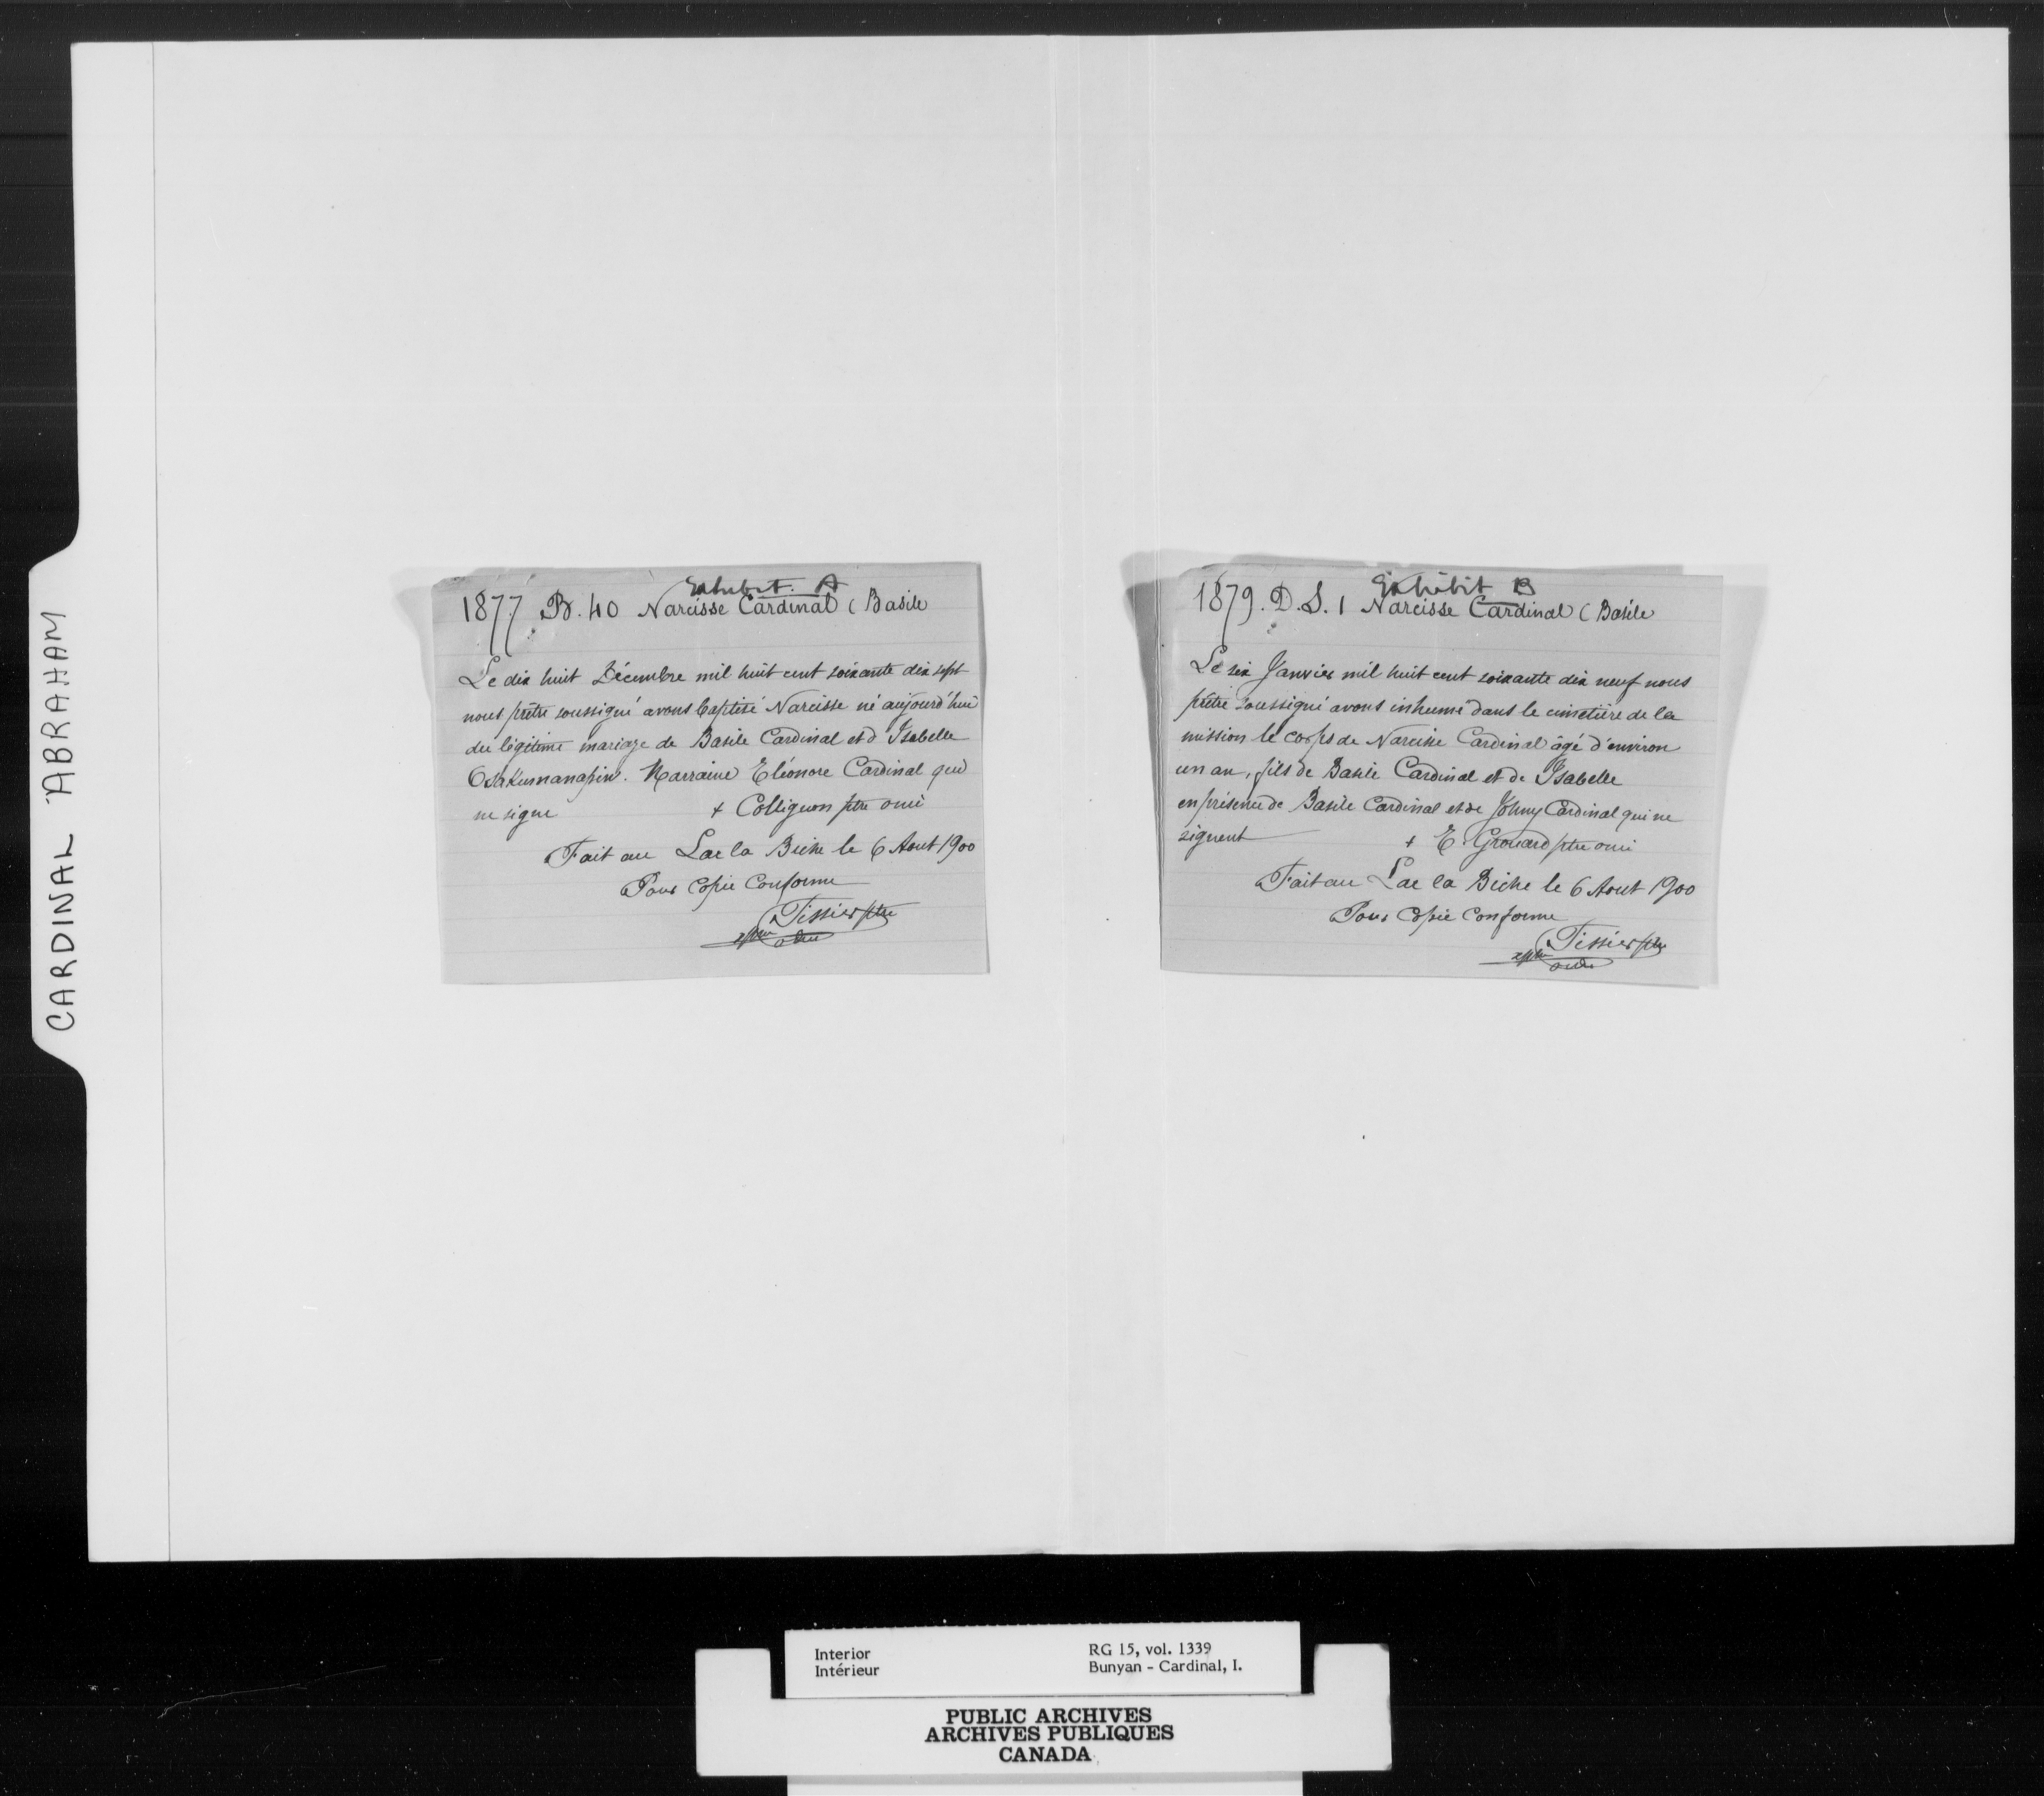 CARDINAL ABRAHAM
Exhibit. A
1877 B. 40 Narcisse Cardinal (Basile
Le dix huit Décembre mil huit cent soixante dix sept
nous prêtre soussigné avons baptisé Narcisse né aujourd'hui
du légitime mariage de Basile Cardinal et d'Isabelle
Osakumanapiw. Marraine Eléonore Cardinal qui
ne signe + Collignon ptre omi
Fait au Lac la Biche le 6 Aout 1900
Pour Copie Conforme
Tissier ptre
Exhibit B
1879. D. S. 1 Narcisse Cardinal (Basile
Le six Janvier mil huit cent soixante dix neuf nous
prêtre soussigné avons inhumé dans le cimetière de la
mission le corps de Narcisse Cardinal âgé d'environ
un an, fils de Basile Cardinal et de Isabelle
en présence de Basile Cardinal et de Johny Cardinal qui ne
signent + E. Grouard ptre omi
Fait au Lac la Biche le 6 Aout 1900
Pour Copie Conforme
Tissier ptre
Interior RG 15, vol. 1339
Intérieur Bunyan - Cardinal, I.
PUBLIC ARCHIVES
ARCHIVES PUBLIQUES
CANADA